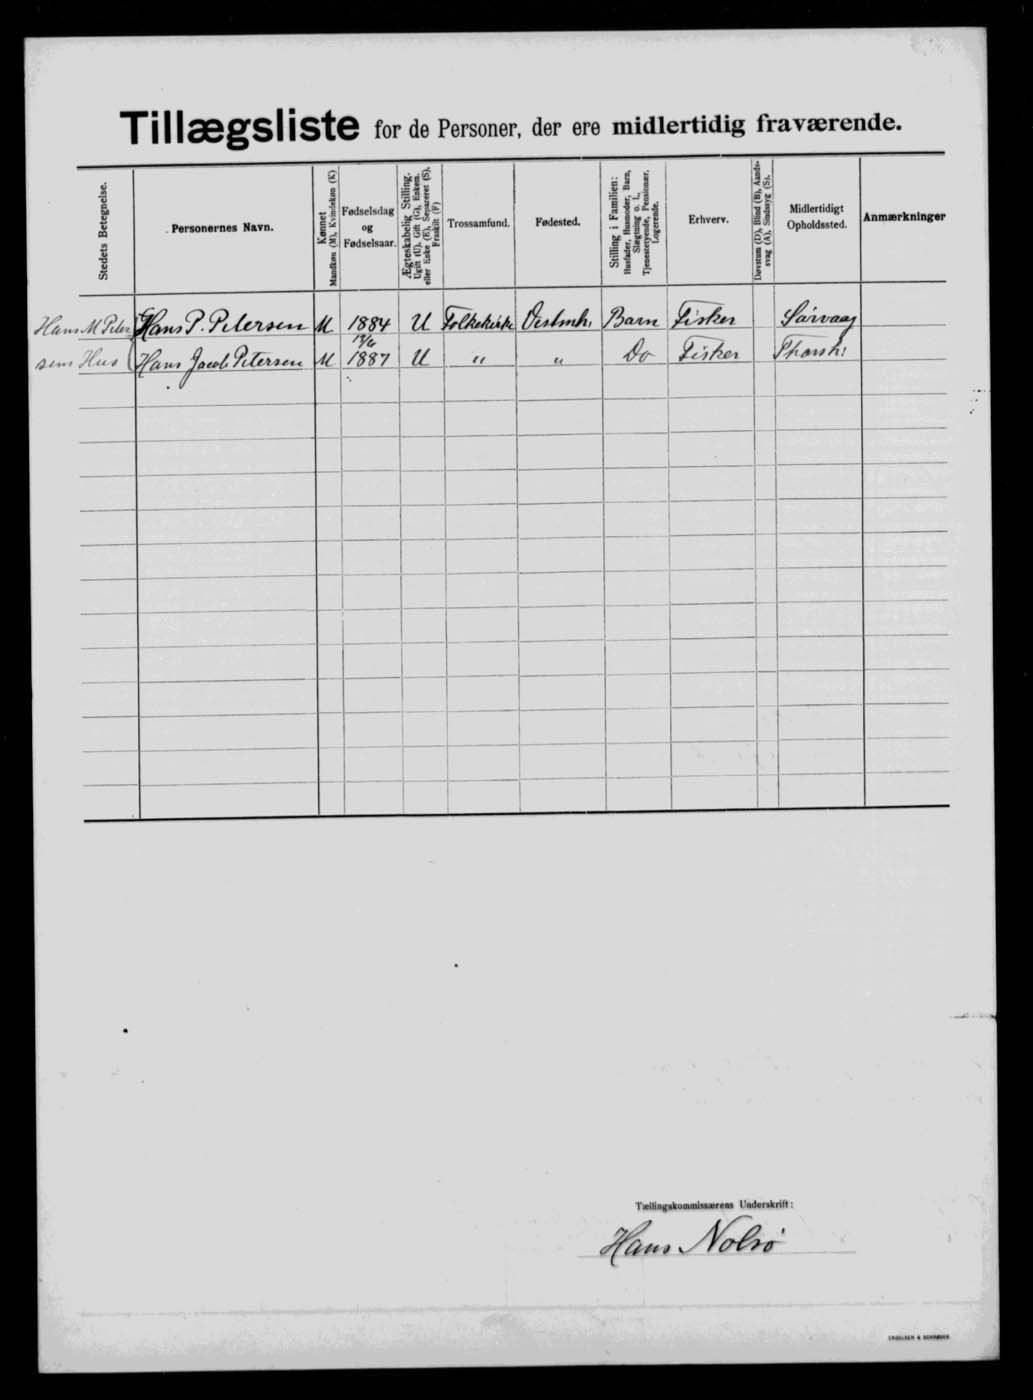 Tillægsliste for de Personer, der ere midlertidig fraværende.
Stedets Betegnelse.
Personernes Navn.
Kønnet
Mandkøn (M), Kvindekøn (K)
Fødselsdag
og
Fødselsaar.
Ægteskabelig Stilling.
Ugift (U), Gift (G), Enkem.
eller Enke (E), Separeret (S),
Fraskilt (F)
Trossamfund.
Fødested.
Stilling i Familien:
Husfader, Husmoder, Barn,
Slægtning o. l.,
Tjenestetyende, Pensionær,
Logerende.
Erhverv.
Døvstum (D), Blind (B), Aands-
svag (A), Sindssyg (S).
Midlertidigt
Opholdssted.
Anmærkninger
Hans M Peter Hans P. Petersen M 1884 U Folkekirke Vestmh. Barn Fisker Sørvaag
sens Hus Hans Jacob Petersen M 1887 U " " Do Fisker Thorsh:
Tællingskommissærens Underskrift:
Hans Nolsø